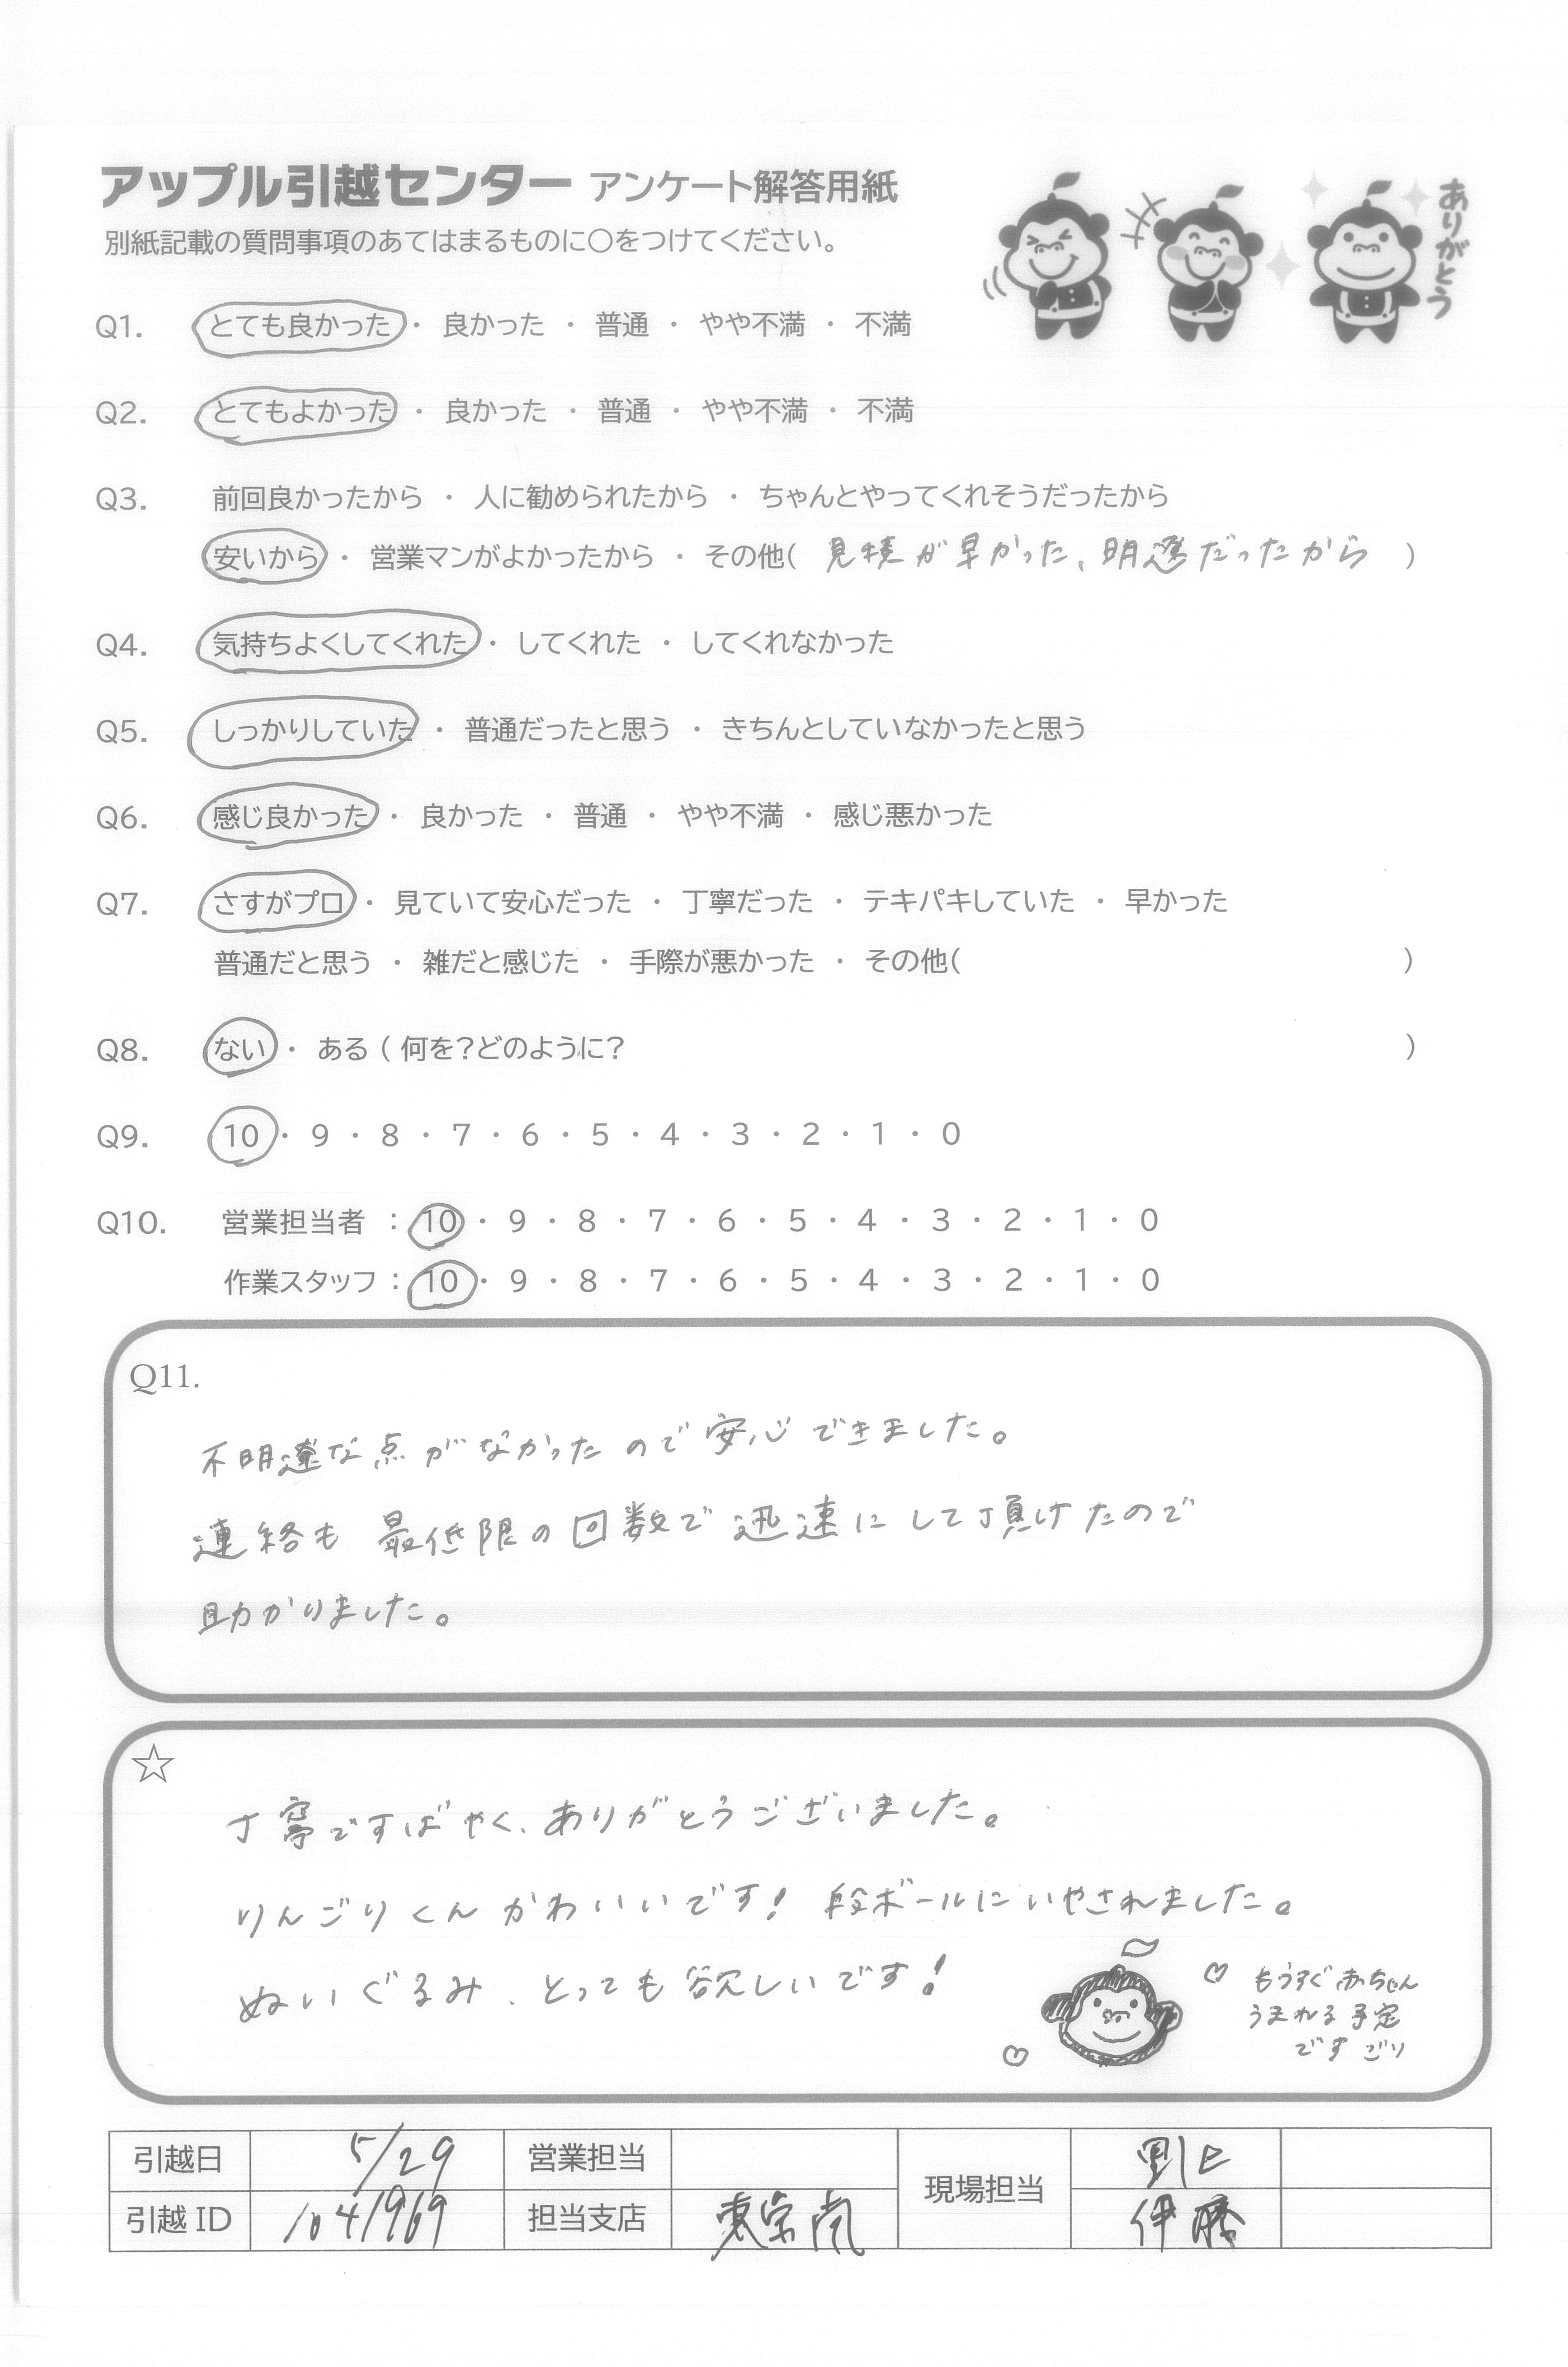 アップル引越センター アンケート解答用紙
別紙記載の質問事項のあてはまるものに○をつけてください。
ありがとう
Q1. とても良かった ・ 良かった ・ 普通 ・ やや不満 ・ 不満
Q2. とてもよかった ・ 良かった ・ 普通 ・ やや不満 ・ 不満
Q3. 前回良かったから ・ 人に勧められたから ・ ちゃんとやってくれそうだったから
安いから ・ 営業マンがよかったから ・ その他( 見積が早かった、明瞭だったから )
Q4. 気持ちよくしてくれた ・ してくれた ・ してくれなかった
Q5. しっかりしていた ・ 普通だったと思う ・ きちんとしていなかったと思う
Q6. 感じ良かった ・ 良かった ・ 普通 ・ やや不満 ・ 感じ悪かった
Q7. さすがプロ ・ 見ていて安心だった ・ 丁寧だった ・ テキパキしていた ・ 早かった
普通だと思う ・ 雑だと感じた ・ 手際が悪かった ・ その他( )
Q8. ない ・ ある ( 何を?どのように? )
Q9. 10 ・ 9 ・ 8 ・ 7 ・ 6 ・ 5 ・ 4 ・ 3 ・ 2 ・ 1 ・ 0
Q10. 営業担当者 : 10 ・ 9 ・ 8 ・ 7 ・ 6 ・ 5 ・ 4 ・ 3 ・ 2 ・ 1 ・ 0
作業スタッフ : 10 ・ 9 ・ 8 ・ 7 ・ 6 ・ 5 ・ 4 ・ 3 ・ 2 ・ 1 ・ 0
Q11.
不明瞭な点がなかったので安心できました。
連絡も最低限の回数で迅速にして頂けたので
助かりました。
☆
丁寧ですばやく、ありがとうございました。
りんごりくんかわいいです! 段ボールにいやされました。
ぬいぐるみ、とっても欲しいです!
♡ もうすぐ赤ちゃん
うまれる予定
ですごり
引越日 5/29 営業担当 現場担当
引越ID 1041969 担当支店 東京南 伊藤